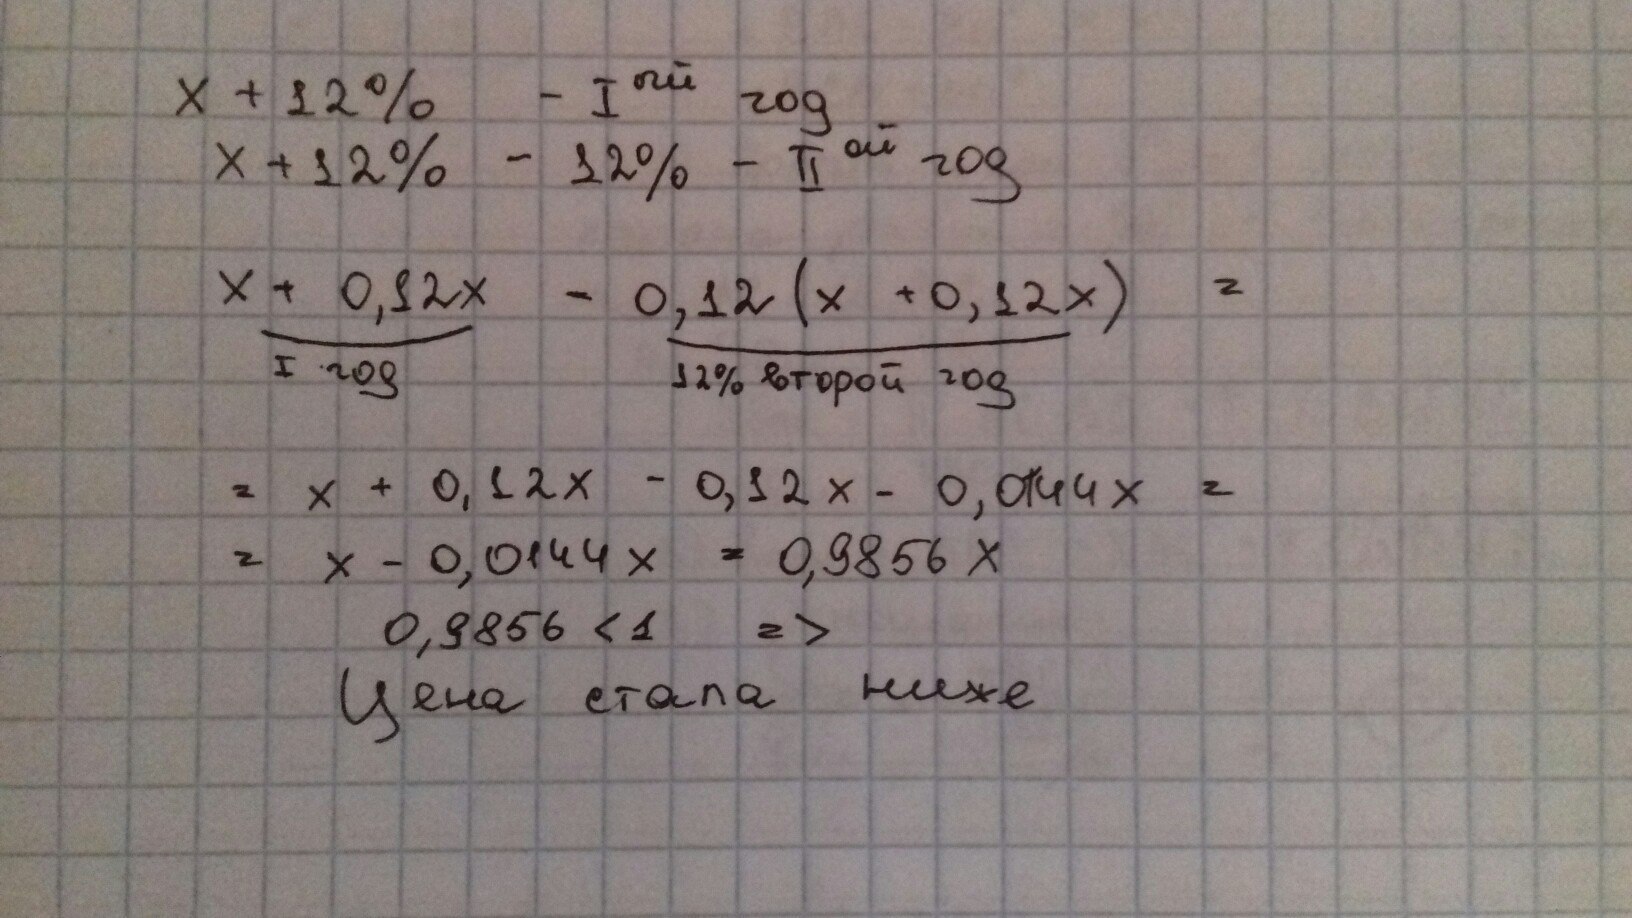 x + 12% - I ый год
x + 12% - 12% - II ой год
x + 0,12x - 0,12 (x + 0,12x) =
I год 12% второй год
= x + 0,12x - 0,12x - 0,0144x =
= x - 0,0144x = 0,9856 x
0,9856 < 1 =>
Цена стала ниже